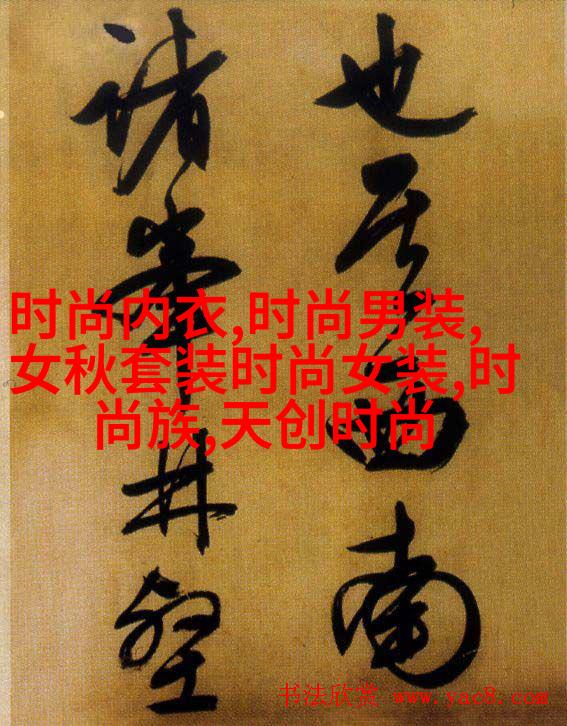 也其西南
諸峯林壑
时尚内衣,时尚男装,
女秋套装时尚女装,时
尚族,天创时尚
书法欣赏 www.yac8.com